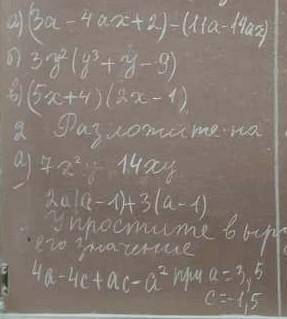 а) (3a - 4ax + 2) - (11a - 14ax)
б) 3y²(y³ + y - 9)
в) (5x + 4)(2x - 1)
2 Разложите на
а) 7x²y 14xy
2a(a - 1) + 3(a - 1)
Упростите выр
его значение
4a - 4c + ac - a² при a = 3,5
c = -1,5